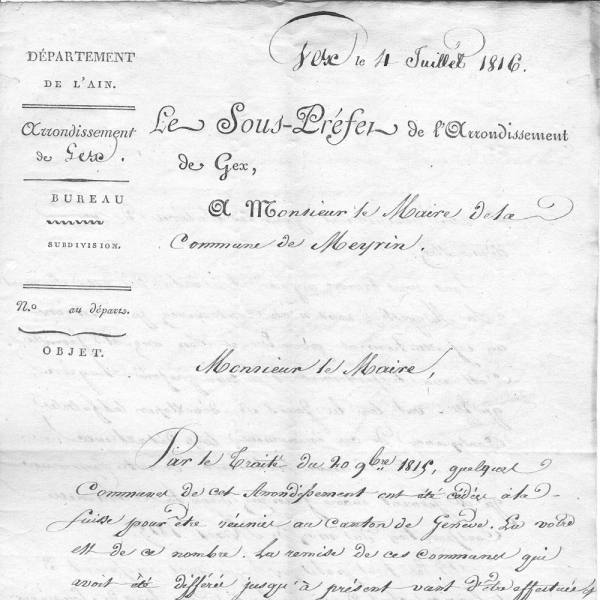 DÉPARTEMENT
DE L'AIN.
Arrondissement
de Gex.
BUREAU
SUBDIVISION.
N.o au départs.
OBJET.
Gex le 4 Juillet 1816.
Le Sous-Préfet de l'Arrondissement
de Gex,
A Monsieur le Maire de la
Commune de Meyrin.
Monsieur le Maire,
Par le Traité du 20 9bre 1815, quelques
Communes de cet Arrondissement ont été cédées à la
Suisse pour être réunies au Canton de Genève. La votre
est de ce nombre. La remise de ces Communes qui
avoit été différée jusqu'à présent vient d'être effectuée